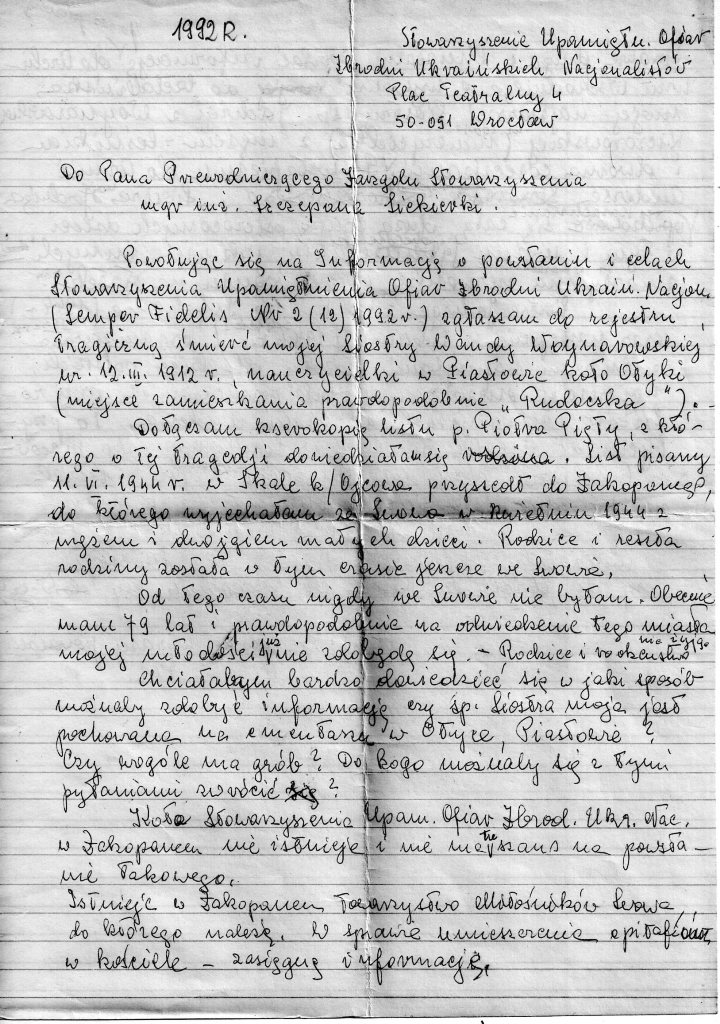 1992 R.
Stowarzyszenie Upamiętn. Ofiar
Zbrodni Ukraińskich Nacjonalistów
Plac Teatralny 4
50-091 Wrocław
Do Pana Przewodniczącego Zarządu Stowarzyszenia
mgr inż. Szczepana Siekierki.
Powołując się na Informację o powstaniu i celach
Stowarzyszenia Upamiętnienia Ofiar Zbrodni Ukraiń. Nacjon.
(Semper Fidelis Nr 2 (12) 1992 r.) zgłaszam do rejestru
tragiczną śmierć mojej Siostry Wandy Woynarowskiej
ur. 12.III.1912 r., nauczycielki w Piastowie koło Ołyki
(miejsce zamieszkania prawdopodobnie „Rudoczka").
Dołączam kserokopię listu p. Piotra Pięty, z któ-
rego o tej tragedji dowiedziałam się. List pisany
11.VI.1944 r. w Skale k/Ojcowa przyszedł do Zakopanego,
do którego wyjechałam ze Lwowa w kwietniu 1944 z
mężem i dwojgiem małych dzieci. Rodzice i reszta
rodziny została w tym czasie jeszcze we Lwowie.
Od tego czasu nigdy we Lwowie nie byłam. Obecnie
mam 79 lat i prawdopodobnie na odwiedzenie tego miasta
mojej młodości już nie zdobędę się. - Rodzice i rodzeństwo nie żyją.
Chciałabym bardzo dowiedzieć się w jaki sposób
możnaby zdobyć informację czy śp. Siostra moja jest
pochowana na cmentarzu w Ołyce, Piastowie?
Czy wogóle ma grób? Do kogo możnaby się z tymi
pytaniami zwrócić?
Koło Stowarzyszenia Upam. Ofiar Zbrod. Ukr. Nac.
w Zakopanem nie istnieje i nie ma tu szans na powsta-
nie takowego.
Istnieje w Zakopanem Towarzystwo Miłośników Lwowa,
do którego należę. W sprawie umieszczenia
w kościele - zasięgnę informację.